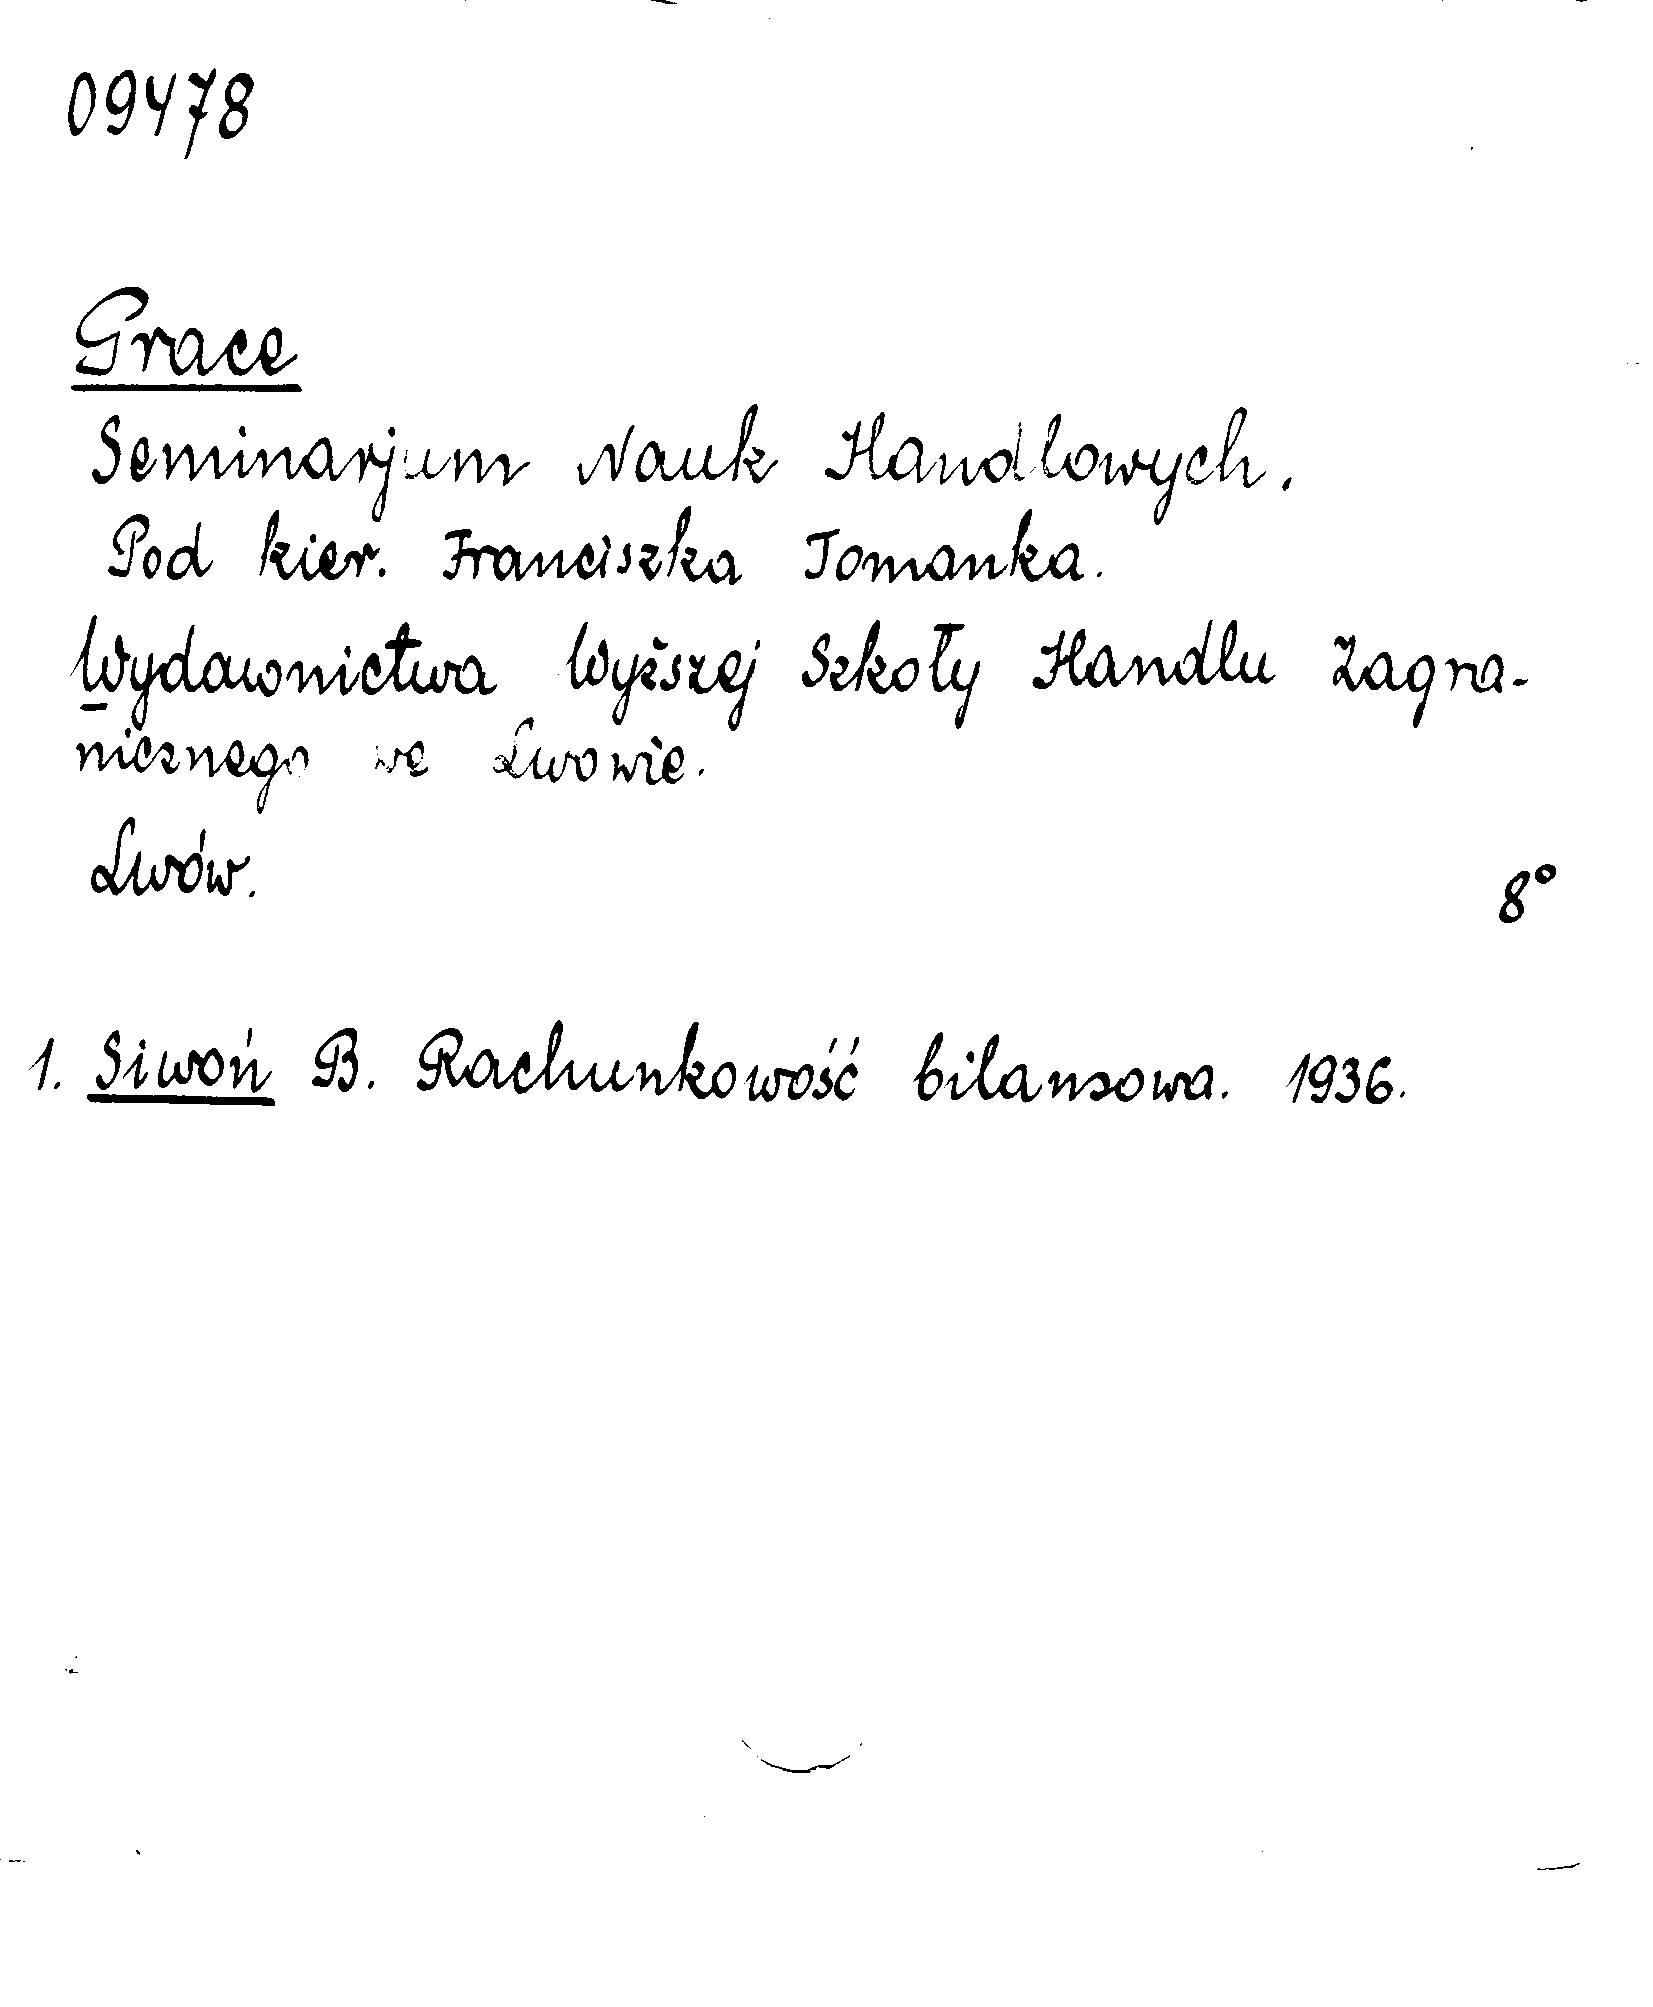 09478
Grace
Seminarjum Nauk Handlowych.
Pod kier. Franciszka Tomanka.
Wydawnictwa Wyższej Szkoły Handlu Zagra-
nicznego we Lwowie.
Lwów.
8°
1. Siwoń B. Rachunkowość bilansowa. 1936.